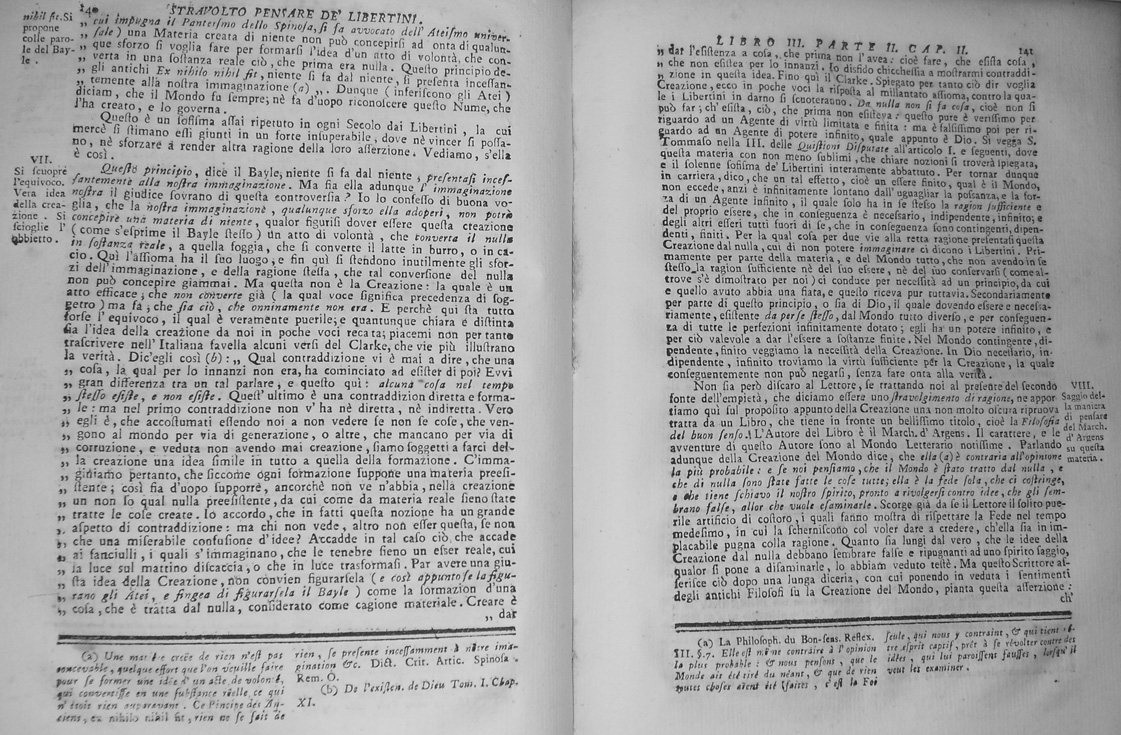 140 STRAVOLTO PENSARE DE' LIBERTINI.
nihil fit. Si
propone
colle paro-
le del Bay-
le.
„ cui impugna il Panteismo dello Spinosa, si fa avvocato dell' Ateismo univer-
„ sale) una Materia creata di niente non può concepirsi ad onta di qualun-
„ que sforzo si voglia fare per formarsi l'idea d'un atto di volontà, che con-
„ verta in una sostanza reale ciò, che prima era nulla. Questo principio de-
„ gli antichi Ex nihilo nihil fit, niente si fa dal niente, si presenta incessan-
„ temente alla nostra immaginazione (a) „. Dunque (inferiscono gli Atei)
diciam, che il Mondo fu sempre; nè fa d'uopo riconoscere questo Nume, che
l'ha creato, e lo governa.
Questo è un sofisma assai ripetuto in ogni Secolo dai Libertini, la cui
mercè si stimano essi giunti in un forte insuperabile, dove nè vincer si possa-
no, nè sforzare a render altra ragione della loro asserzione. Vediamo, s'ella
è così.
VII.
Si scuopre
l'equivoco.
Vera idea
della crea-
zione. Si
scioglie l'
obbietto.
Questo principio, dice il Bayle, niente si fa dal niente, presentasi inces-
santemente alla nostra immaginazione. Ma sia ella adunque l'immaginazione
nostra il giudice sovrano di questa controversia? Io lo confesso di buona vo-
glia, che la nostra immaginazionè, qualunque sforzo ella adoperi, non potrà
concepire una materia di niente, qualor figurisi dover essere questa creazione
(come s'esprime il Bayle stesso) un atto di volontà, che converta il nulla
in sostanza reale, a quella foggia, che si converte il latte in burro, o in ca-
cio. Quì l'assioma ha il suo luogo, e fin quì si stendono inutilmente gli sfor-
zi dell'immaginazione, e della ragione stessa, che tal conversione del nulla
non può concepire giammai. Ma questa non è la Creazione: la quale è un
atto efficace; che non converte già (la qual voce significa precedenza di sog-
getto) ma fa, che sia ciò, che onninamente non era. E perchè quì sta tutto
forse l'equivoco, il qual è veramente puerile; e quantunque chiara e distinta
sia l'idea della creazione da noi in poche voci recata; piacemi non per tanto
trascrivere nell' Italiana favella alcuni versi del Clarke, che vie più illustrano
la verità. Dic'egli così (b): „ Qual contraddizione vi è mai a dire, che una
„ cosa, la qual per lo innanzi non era, ha cominciato ad esister di poi? Evvi
„ gran differenza tra un tal parlare, e questo quì: alcuna cosa nel tempo
„ stesso esiste, e non esiste. Quest'ultimo è una contraddizion diretta e forma-
„ le: ma nel primo contraddizione non v'ha nè diretta, nè indiretta. Vero
„ egli è, che accostumati essendo noi a non vedere se non se cose, che ven-
„ gono al mondo per via di generazione, o altre, che mancano per via di
„ corruzione, e veduta non avendo mai creazione, siamo soggetti a farci del-
„ la creazione una idea simile in tutto a quella della formazione. C'imma-
„ giniamo pertanto, che siccome ogni formazione suppone una materia preesi-
„ stente; così fia d'uopo supporre, ancorchè non ve n'abbia, nella creazione
„ un non so qual nulla preesistente, da cui come da materia reale sieno state
„ tratte le cose create. Io accordo, che in fatti questa nozione ha un grande
„ aspetto di contraddizione: ma chi non vede, altro non esser questa, se non
„ che una miserabile confusione d'idee? Accade in tal caso ciò che accade
„ ai fanciulli, i quali s'immaginano, che le tenebre sieno un esser reale, cui
„ la luce sul mattino discaccia, o che in luce trasformasi. Par avere una giu-
„ sta idea della Creazione, non convien figurarsela (e così appunto se la figu-
„ rano gli Atei, e fingea di figurarsela il Bayle) come la formazion d'una
„ cosa, che è tratta dal nulla, considerato come cagione materiale. Creare è
„ dar
(a) Une matière creée de rien n'est pas
concevable, quelque effort que l'on veuille faire
pour se former une idée d'un acte de volonté,
qui convertisse en une substance réelle ce qui
n'étoit rien auparavant. Ce Principe des An-
ciens, ex nihilo nihil fit, rien ne se fait de
rien, se presente incessamment à nôtre ima-
gination &c. Dict. Crit. Artic. Spinosa.
Rem. O.
(b) De l'existen. de Dieu Tom. I. Chap.
XI.
LIBRO III. PARTE II. CAP. II. 141
„ dar l'esistenza a cosa, che prima non l'avea: cioè fare, che esista cosa,
„ che non esistea per lo innanzi. Io disfido chicchessia a mostrarmi contraddi-
„ zione in questa idea. Fino quì il Clarke. Spiegato per tanto ciò dir voglia
Creazione, ecco in poche voci la risposta al millantato assioma, contro la qua-
le i Libertini in darno si scuoteranno. Da nulla non si fa cosa, cioè non si
può far; ch'esista, ciò, che prima non esisteva: questo pure è verissimo per
riguardo ad un Agente di virtù limitata e finita: ma è falsissimo poi per ri-
guardo ad un Agente di potere infinito, quale appunto è Dio. Si vegga S.
Tommaso nella III. delle Quistioni Disputate all'articolo I. e seguenti, dove
questa materia con non meno sublimi, che chiare nozioni si troverà spiegata,
e il solenne sofisma de' Libertini interamente abbattuto. Per tornar dunque
in carriera, dico, che un tal effetto, cioè un essere finito, qual è il Mondo,
non eccede, anzi è infinitamente lontano dall'uguagliar la possanza, e la for-
za di un Agente, il quale solo ha in se stesso la ragion sufficiente e
del proprio essere, che in conseguenza è necessario, indipendente, infinito; e
degli altri esseri tutti fuori di se, che in conseguenza sono contingenti, dipen-
denti, finiti. Per la qual cosa per due vie alla retta ragione presentasi questa
Creazione dal nulla, cui di non potere immaginare ci dicono i Libertini. Pri-
mamente per parte della materia, e del Mondo tutto, che non avendo in se
stesso la ragion sufficiente nè del suo essere, nè del suo conservarsi (come al-
trove s'è dimostrato per noi) ci conduce per necessità ad un principio, da cui
e quello avuto abbia una fiata, e questo riceva pur tuttavia. Secondariamente
per parte di questo principio, o sia di Dio, il quale dovendo essere e necessa-
riamente, esistente da per se stesso, dal Mondo tutto diverso, e per conseguen-
za di tutte le perfezioni infinitamente dotato; egli ha un potere infinito, e
per ciò valevole a dar l'essere a sostanze finite. Nel Mondo contingente, di-
pendente, finito veggiamo la necessità della Creazione. In Dio necessario, in-
dipendente, infinito troviamo la virtù sufficiente per la Creazione, la quale
conseguentemente non può negarsi, senza fare onta alla verità.
Non sia però discaro al Lettore, se trattando noi al presente del secondo
fonte dell'empietà, che diciamo essere uno stravolgimento di ragione, ne appor
tiamo quì sul proposito appunto della Creazione una non molto oscura riprova
tratta da un Libro, che tiene in fronte un bellissimo titolo, cioè la Filosofia
del buon senso. L'Autore del Libro è il March. d'Argens. Il carattere, e le
avventure di questo Autore sono al Mondo Letterario notissime. Parlando
adunque della Creazione del Mondo dice, che ella (a) è contraria all'opinione
la più probabile: e se noi pensiamo, che il Mondo è stato tratto dal nulla, e
che di nulla sono state fatte le cose tutte; ella è la fede sola, che ci costringe,
e che tiene schiavo il nostro spirito, pronto a rivolgersi contro idee, che gli sem-
brano false, allor che vuole esaminarle. Scorge già da se il Lettore il solito pue-
rile artificio di costoro, i quali fanno mostra di rispettare la Fede nel tempo
medesimo, in cui la scherniscono col voler dare a credere, ch'ella sia in im-
placabile pugna colla ragione. Quanto sia lungi dal vero, che le idee della
Creazione dal nulla debbano sembrare false e ripugnanti ad uno spirito saggio,
qualor si pone a disaminarle, lo abbiam veduto testè. Ma questo Scrittore as-
serisce ciò dopo una lunga diceria, con cui ponendo in veduta i sentimenti
degli antichi Filosofi su la Creazione del Mondo, pianta questa asserzione:
ch'
VIII.
Saggio del-
la maniera
di pensare
del March.
d' Argens
su questa
materia.
(a) La Philosoph. du Bon-sens. Réflex.
III. §. 7. Elle est même contraire à l'opinion
la plus probable: & nous pensons, que le
Monde ait été tiré du néant, & que de rien
toutes choses aïent été faites, c'est la Foi
seule, qui nous y contraint, & qui tient nô-
tre esprit captif, prêt à se révolter contre des
idées, qui lui paroissent fausses, lorsqu'il
veut les examiner.